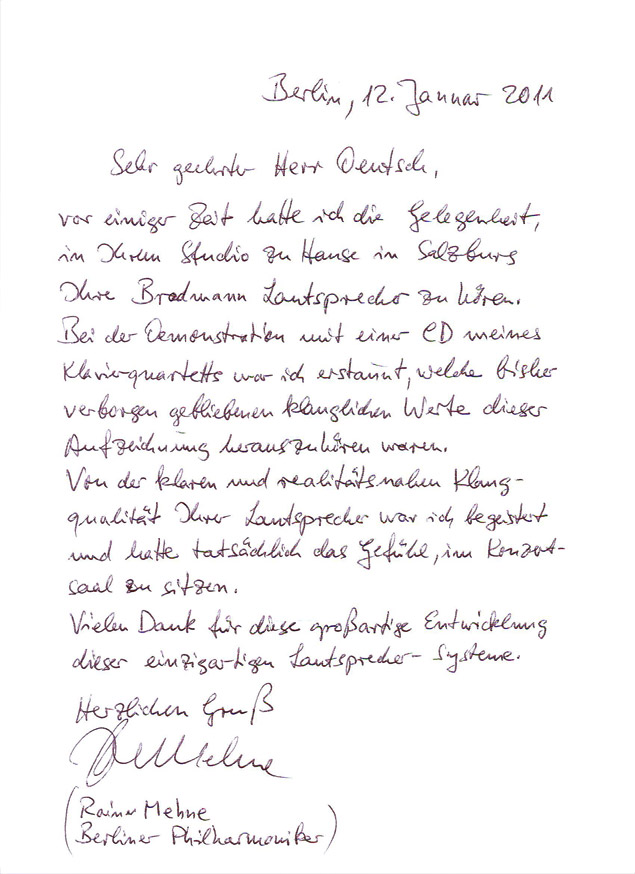 Berlin, 12. Januar 2011
Sehr geehrter Herr Deutsch,
vor einiger Zeit hatte ich die Gelegenheit,
in Ihrem Studio zu Hause in Salzburg
Ihre Brodmann Lautsprecher zu hören.
Bei der Demonstration mit einer CD meines
Klavierquartetts war ich erstaunt, welche bisher
verborgen gebliebenen klanglichen Werte dieser
Aufzeichnung herauszuhören waren.
Von der klaren und realitätsnahen Klang-
qualität Ihrer Lautsprecher war ich begeistert
und hatte tatsächlich das Gefühl, im Konzert-
saal zu sitzen.
Vielen Dank für diese großartige Entwicklung
dieser einzigartigen Lautsprecher-Systeme.
Herzlichen Gruß
R Mehne
(Rainer Mehne
Berliner Philharmoniker)